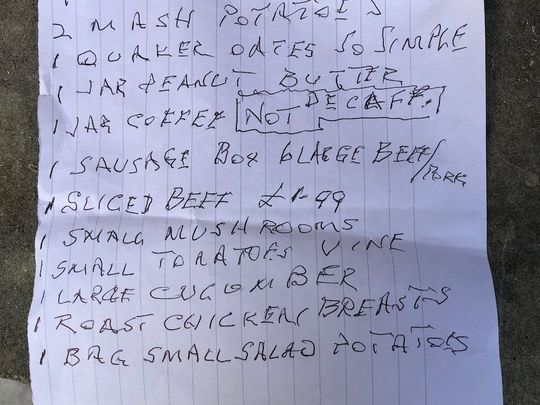 2 MASH POTATOES
1 QUAKER OATES SO SIMPLE
1 JAR PEANUT BUTTER
1 JAR COFFEE NOT DECAFF.
1 SAUSAGE BOX 6 LARGE BEEF/PORK
1 SLICED BEEF £1.99
1 SMALL MUSHROOMS
1 SMALL TOMATOES VINE
1 LARGE CUCOMBER
1 ROAST CHICKEN BREASTS
1 BAG SMALL SALAD POTATOES